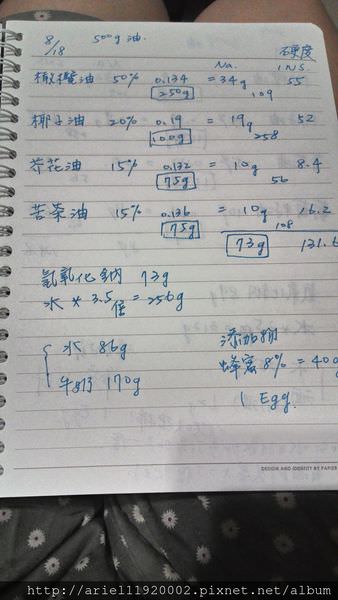 8/18 500g 油. 硬度
Na. INS.
橄欖油 50% 0.134 = 34g 55
250g 109
椰子油 20% 0.19 = 19g 52
100g 258
芥花油 15% 0.132 = 10g 8.4
75g 56
苦茶油 15% 0.136 = 10g 16.2
75g 108
73g 131.6
氫氧化鈉 73g
水 * 3.5倍 = 256g
水 86g 添加物
牛奶 170g 蜂蜜 8% = 40g
1 Egg.
DESIGN AND IDENTITY BY PAPIER
http://ariel11920002.pixnet.net/album